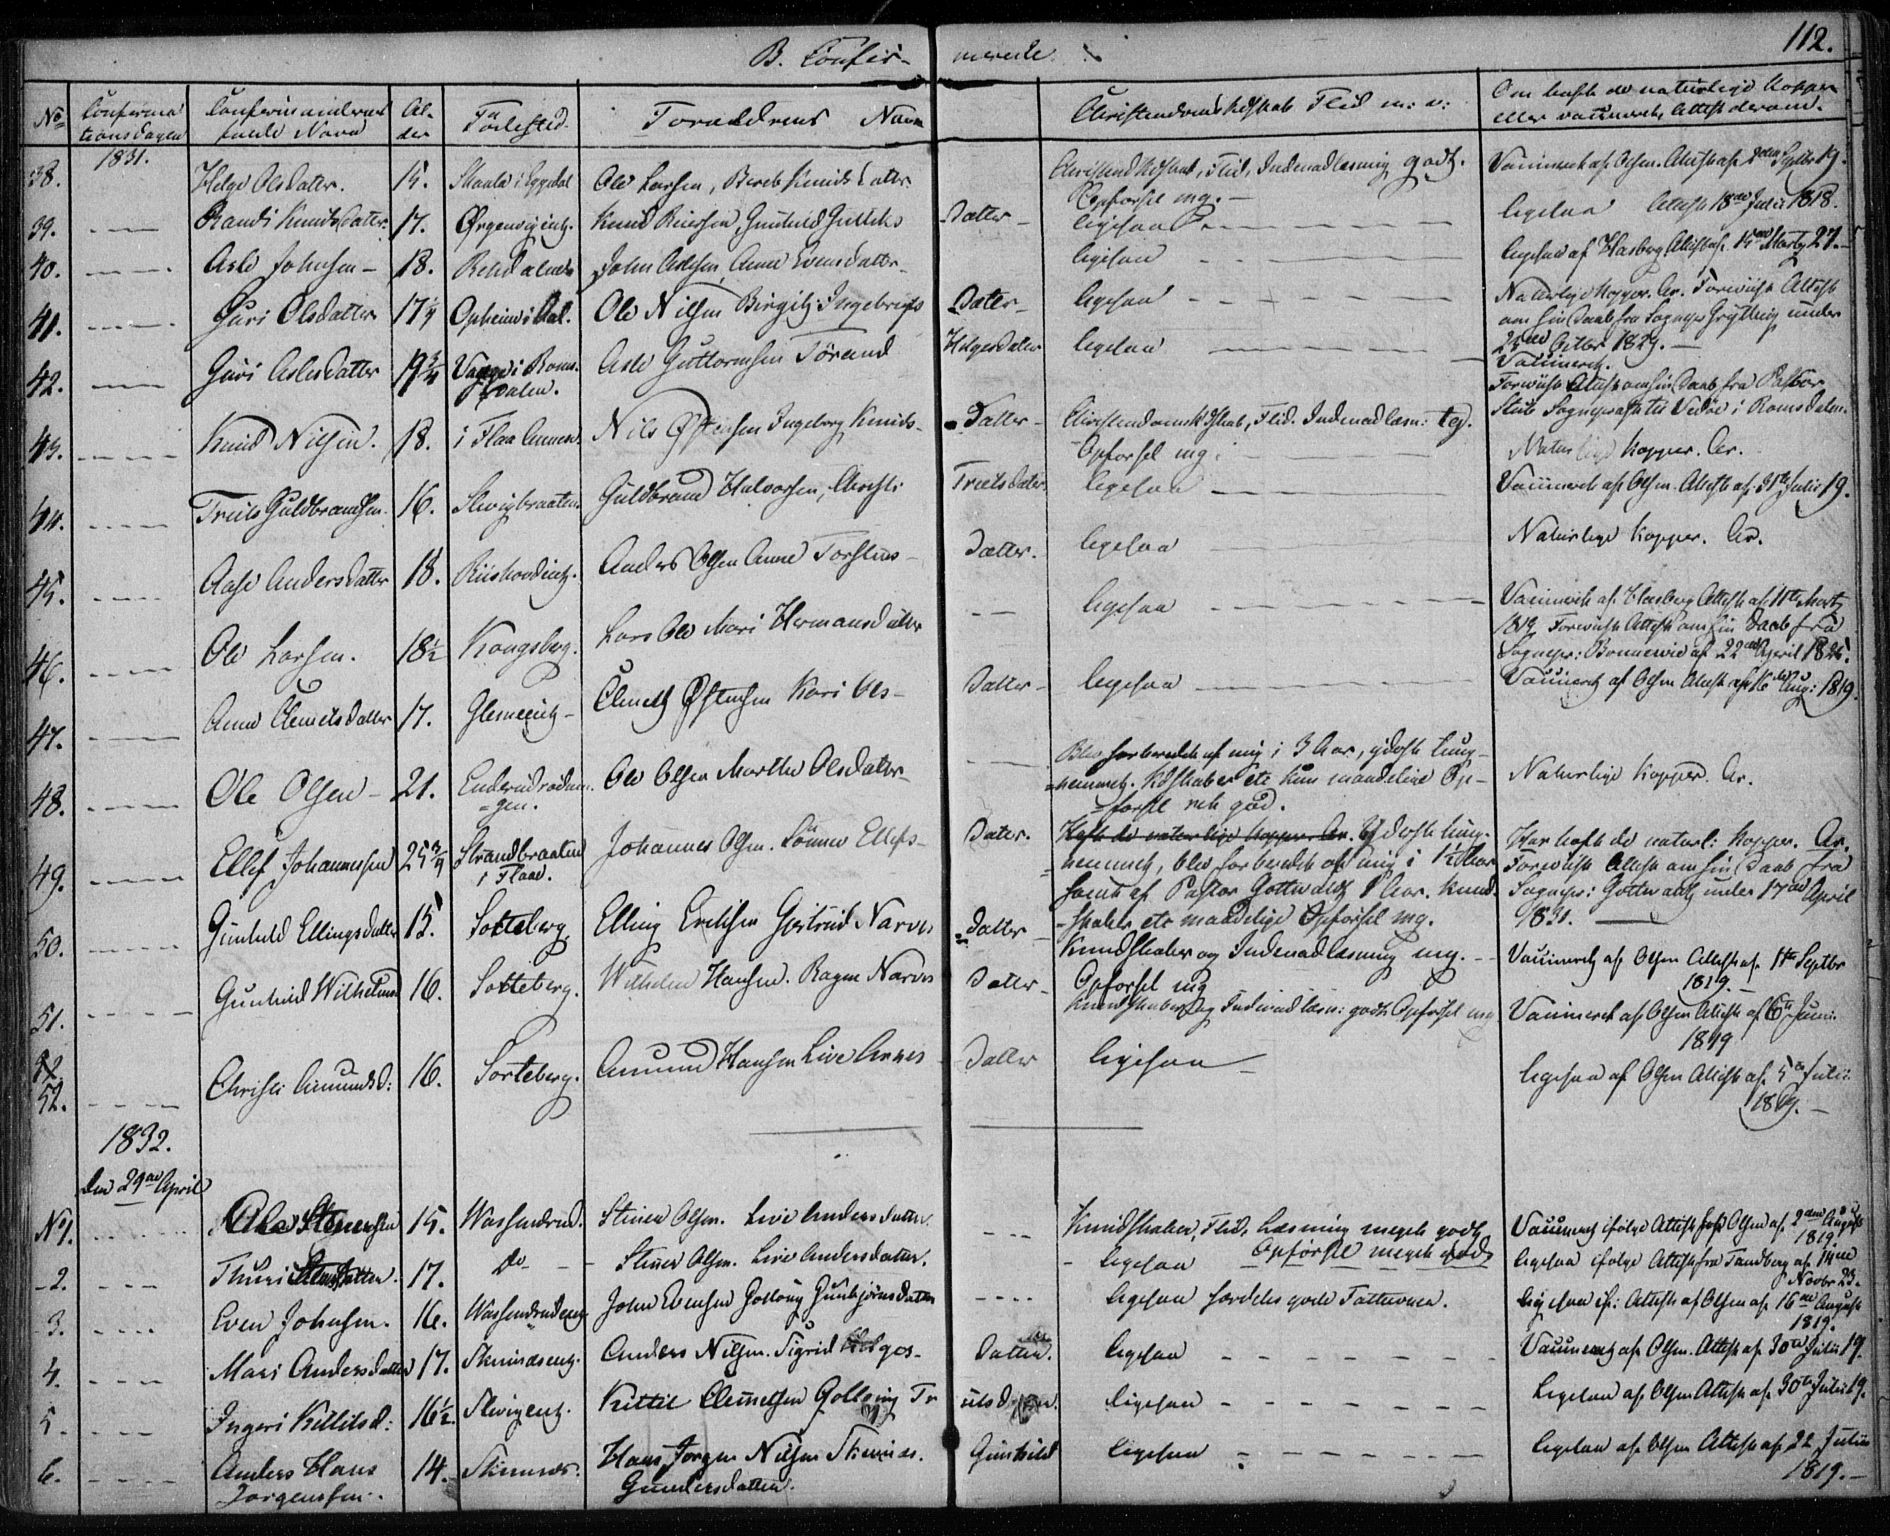 112.
B. Confir- merede.
No Confirma tionsdagen Al- der Fødested. Forældrenes Navn Christendoms Kdskab Flid m: v: Om havt de naturlige Kopper eller vaccineret, Attest derom.
1831.
38. Helge Olsdatter. 15. i Eggedal Ole Larsen, Bereb Knudsdatter Christend Kdskab, Flid, Indenadlæsning godt. Opførsel mg. Vaccineret af Olsen. Attest af Septbr 19.
39. Randi Knudsdatter. 17. Knud Gunhild Gulliks Datter ligesaa ligesaa Attest 18de Julii 1818.
40. Asle Johnsen 18. John Aslesen, Anne Evensdatter ligesaa ligesaa af Hasberg Attest af 15de Marty 27.
41. Guri Olsdatter 17 1/4 Opheim i Aal. Ole Nilsen Birgith Ingebrigts Datter ligesaa Naturlige Kopper. Ar. Foreviist Attest
om sin Daab fra Sognepr Grytting under
25de Octbr 1829.
42. Guri Aslesdatter 19 3/4 Vange i Roms- dalen. Asle Guttormsen Tørand Helgesdatter ligesaa Vaccineret.
Foreviist Attest om sin Daab fra Pastor
Stub Sognepræst til Vedøe i Romsdalen.
43. Knud Nilsen. 18. i Flaa Annex. Nils Østensen Ingeborg Knuds- Datter Christendomskdskab, Flid. Indenadlæsn: tg. Opførsel mg. Naturlige Kopper. Ar.
44. Truls Guldbrandsen 16. Guldbrand Halvorsen, Christi Trulsdatter ligesaa Vaccineret af Olsen. Attest af 31te Julii 19.
45. Aase Andersdatter 18. Anders Olsen Anne Torstens- Datter. ligesaa Naturlige Kopper. Ar.
46. Ole Larsen. 18 1/2 Kongsberg. Lars Ole Mari Hermansdatter ligesaa Vaccineret af Hasberg Attest af 11te Marty
1819 Foreviist Attest om sin Daab fra
Sognepr: Bonnevie af 22de April 1825.
47. Anne Clemetsdatter 17. Clemet Østensen Kari Ols- Datter ligesaa Vaccineret af Olsen Attest af 16de Aug: 1819.
48. Ole Olsen 21. Ole Olsen Marthe Olsdatter Blev forberedet af mig i 3 Aar, yderst tung-
nemmet. Kdskaber etc kun maadelige Op-
førsel ret god. Naturlige Kopper. Ar.
49. Ellef Johannessen 25 3/4 Strandbraaten i Flaae. Johannes Olsen. Sønnev Ellefs- Datter. Havt de naturlige Kopper. Ar. Yderst tung-
nemmet, blev forberedet af mig i Aar
samt af Pastor Gottwaldt 8 Aar. Kund-
skaber etc maadelige Opførsel mg. Har havt de naturl: Kopper. Ar.
Foreviist Attest om sin Daab fra
Sognepr: Gottwaldt under 17de April
1831.
50. Gunhild Ellingsdatter 15. Sorteberg Elling Erichsen Gjertrud Narves Datter Kundskaber og Indenadlæsning mg. Opførsel mg Vaccineret af Olsen Attest af 11te Septbr 1819.
51. Gunhild Wilhelmsd 16. Sorteberg. Wilhelm Hansen. Ragne Narves Datter Kundskaber og Indenadlæsn: godt Opførsel mg Vaccineret af Olsen Attest af 6te Juni 1819
52.
52. Christi Amundsd: 16. Sorteberg. Amund Hansen Live Arnes Datter ligesaa ligesaa af Olsen Attest af 5te Julii 1819.
1832.
Den 29de April
No 1. 15. Wassendrud. Stener Olsen. Live Andersdatter. Kundskaber, Flid, Læsning meget godt Opførsel meget godt Vaccineret ifølge Attest fra Olsen af 2den August 1819.
2. Thuri 17. do Stener Olsen. Live Andersdatter. ligesaa ligesaa ifølge Attest fra Tandberg af 14de Novbr 23.
3. Even Johnsen. 16. Wassendrudeng John Evensen Gollaug Gunbjørnsdatter ligesaa særdeles gode Fatteevner. ligesaa if: Attest af Olsen af 16de August 1819.
4. Mari Andersdatter 17. Skrinnæseng. Anders Nilsen. Sigrid Helges- Datter. ligesaa Vaccineret af Olsen. Attest af 30te Julii 19.
5. Ingeri Kittilsd: 16 1/2. Kittil Clemetsen Gollaug Tr ulsdatter. ligesaa Ligesaa af Olsen Attest af 30te Julii 19.
6. Anders Hans Jørgenssen. 14. Skrinnæs. Hans Jørgen Nilsen Skrinnæs. Gunhild Gundersdatter. ligesaa ligesaa af Olsen Attest af 22 Julii 1819.